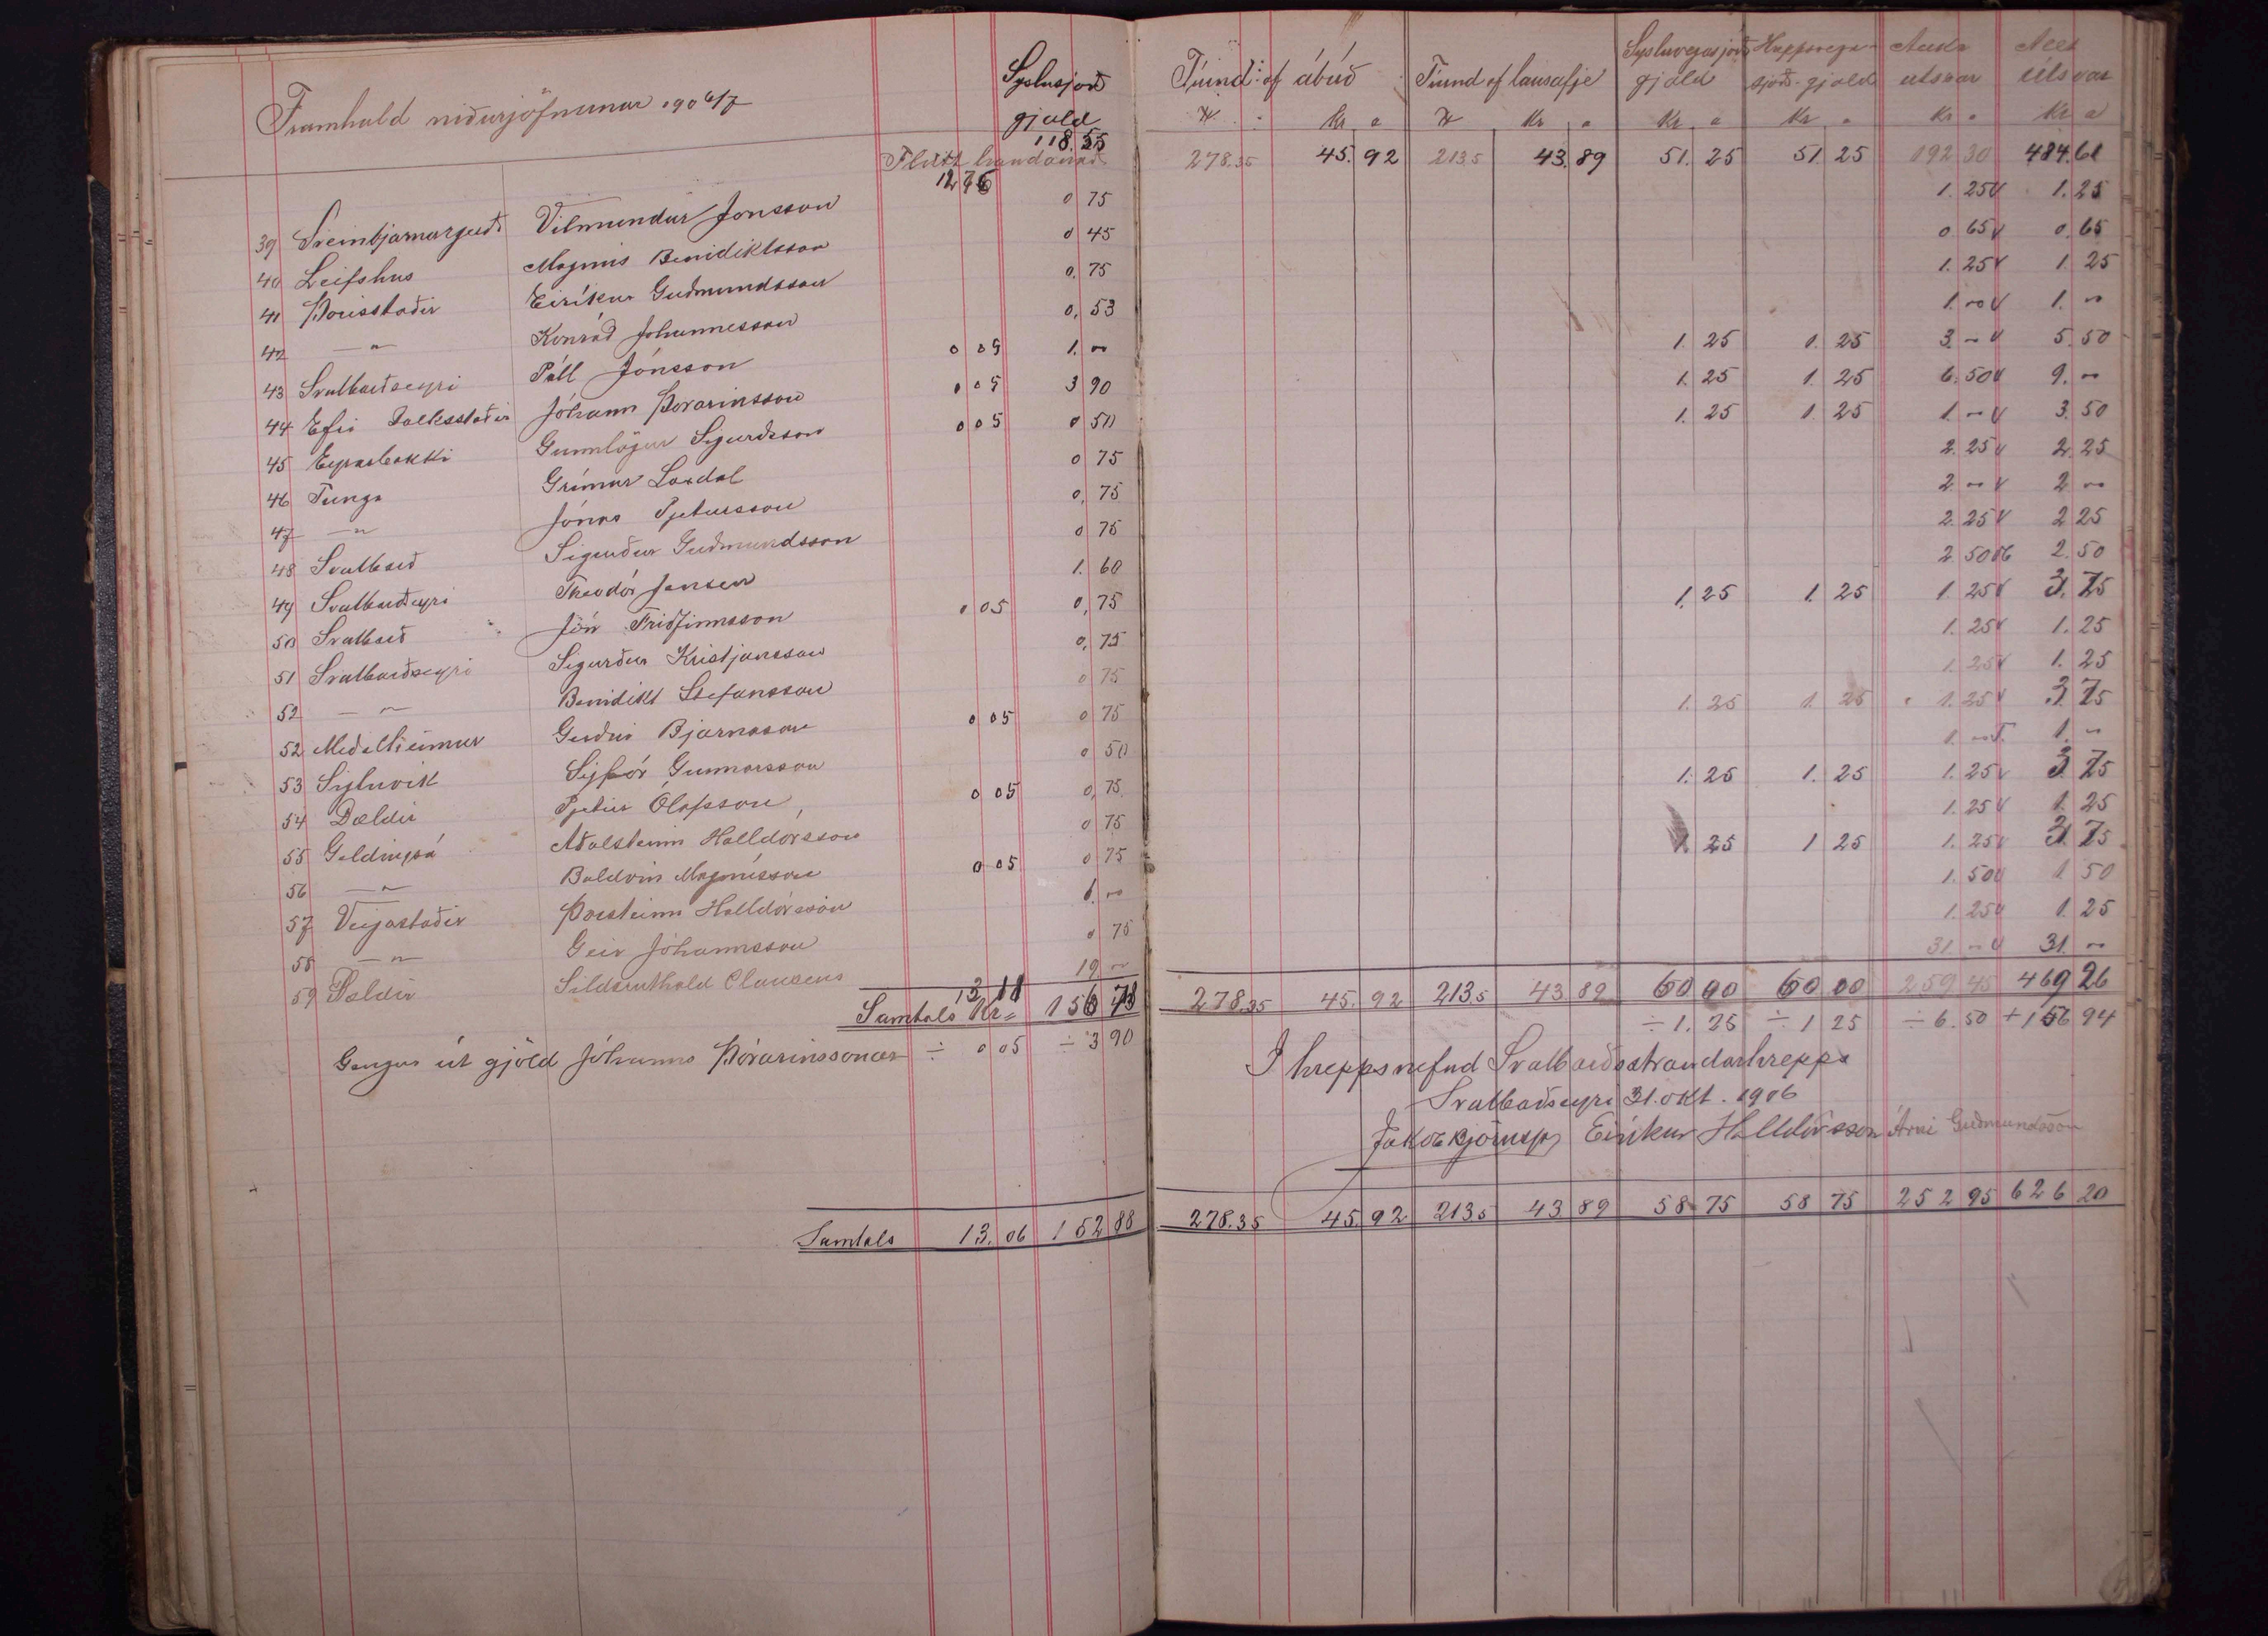 Framhald niðurjöfnunar 1906/7
Syslusjóðs
gjald
118.55
Flutt
1276
39 Sveinbjarnargerði Vilmundur Jónsson 0 75
40 Leifshus Magnús Benidiktsson 0 45
41 Þórisstaðir Eiríkur Guðmundsson 0. 75
42 — " — Konráð Jóhannesson 0. 53
43 Svalbarðseyri Páll Jónsson 0 05 1. "
44 Efri Dálksstaðir Jóhann Þorarinsson 0 05 3 90
45 Eyrarbakki Gunnlögur Sigurðsson 0 05 0 50
46 Tunga Grímur Laxdal 0 75
47 — " Jónas Pjetursson 0. 75
48 Svalbarð Sigurður Guðmundsson 0 75
49 Svalbarðseyri Theodór Jensen 1. 60
50 Svalbarð Jón Friðfinnsson 0 05 0, 75
51 Svalbarðseyri Sigurður Kristjánsson 0, 75
52 — " — Benidikt Stefánsson 0 75
52 Meðalheimur Guðni Bjarnason 0 05 0 75
53 Sigluvík Sigþór Gunnarsson 0 50
54 Dældir Pjetur Ólafsson 0 05 0, 75
55 Geldingsá Aðalsteinn Halldórsson 0 75
56 — " — Baldvin Magnússon 0 05 0 75
57 Veigastaðir Þorsteinn Halldórsson 1. "
58 — " — Geir Jóhannsson 0 75
59 Dældir Clausens 19 "
Samtals Kr= 13 11 156 78
Gengur út gjöld Jóhanns Þórarinssonar ÷ 0 05 ÷ 3 90
Samtals 13. 06 152 88
Tíund af ábúð Tíund af lausafje Sysluvegasjóðs gjald Hreppsvegasjóðs-gjald Auka útsvar Alls útsvar
Kr. a Kr. a Kr. a Kr. a Kr. a Kr a
278.35 45. 92 213.5 43. 89 51. 25 51. 25 192 30 484.61
1. 25 V 1. 25
0. 65 V 0. 65
1. 25 V 1 25
1. " V 1. "
1. 25 1. 25 3. " V 5. 50
1. 25 1. 25 6. 50 V 9. "
1. 25 1. 25 1. " V 3. 50
2. 25 V 2. 25
2 " V 2 "
2. 25 V 2 25
2 50 2. 50
1. 25 1. 25 1. 25 V 3. 75
1. 25 V 1. 25
1. 25 V 1. 25
1. 25 1. 25 1. 25 V 3. 75
1. " 1. "
1. 25 1. 25 1. 25 V 3 75
1. 25 V 1. 25
1. 25 1 25 1. 25 V 3. 75
1. 50 V 1 50
1. 25 V 1. 25
31. " V 31. "
278.35 45. 92 213.5 43 89 60 00 60 00 259 45 469 26
÷ 1. 25 ÷ 1 25 ÷ 6. 50 + 156 94
I hreppsnefnd Svalbarðsstrandarhrepps
Svalbarðseyri 31. okt. 1906
Jakob Björnss Eiríkur Halldórsson Árni Guðmundsson
278.35 45. 92 213.5 43 89 58 75 58 75 252 95 626 20